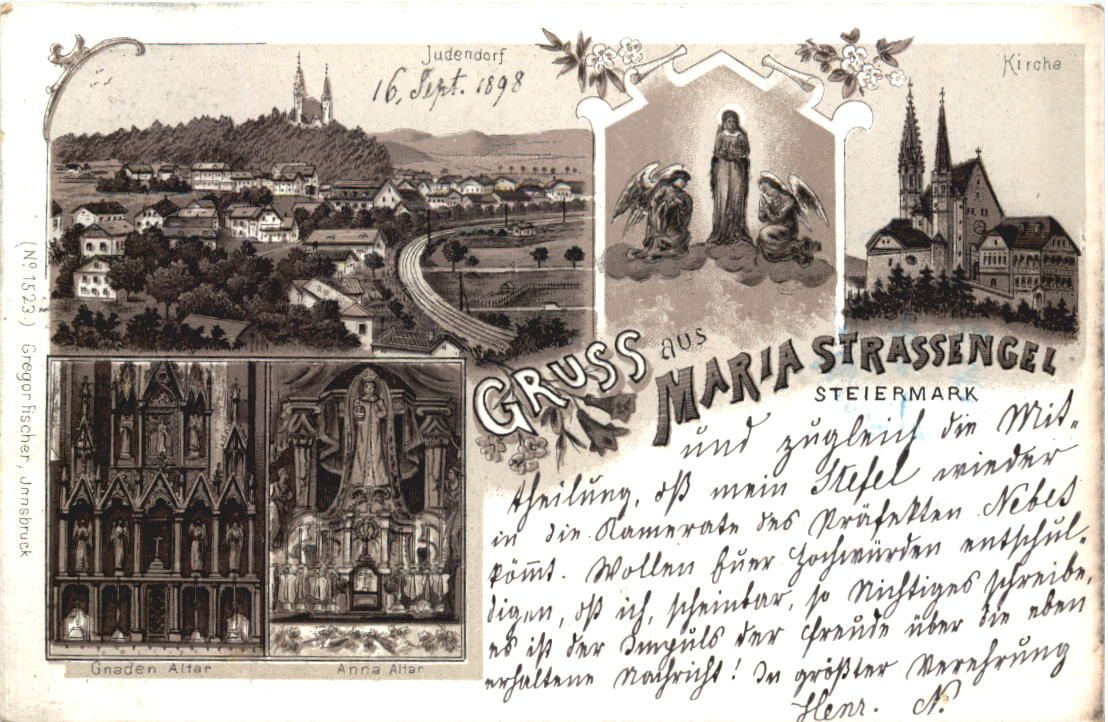 Judendorf
16. Sept. 1898
Kirche
GRUSS aus
MARIA STRASSENGEL
STEIERMARK
und zugleich die Mit-
theilung, dß mein Stefel wieder
in die Kamerate des Präfekten Nebel
kömmt. Wollen Euer Hochwürden entschul-
digen, dß ich, scheinbar, so Nichtiges schreibe,
es ist der Impuls der Freude über die eben
erhaltene Nachricht! In größter Verehrung
Henr. N.
Gnaden Altar
Anna Altar
(No 1523.) Gregor Fischer, Jnnsbruck